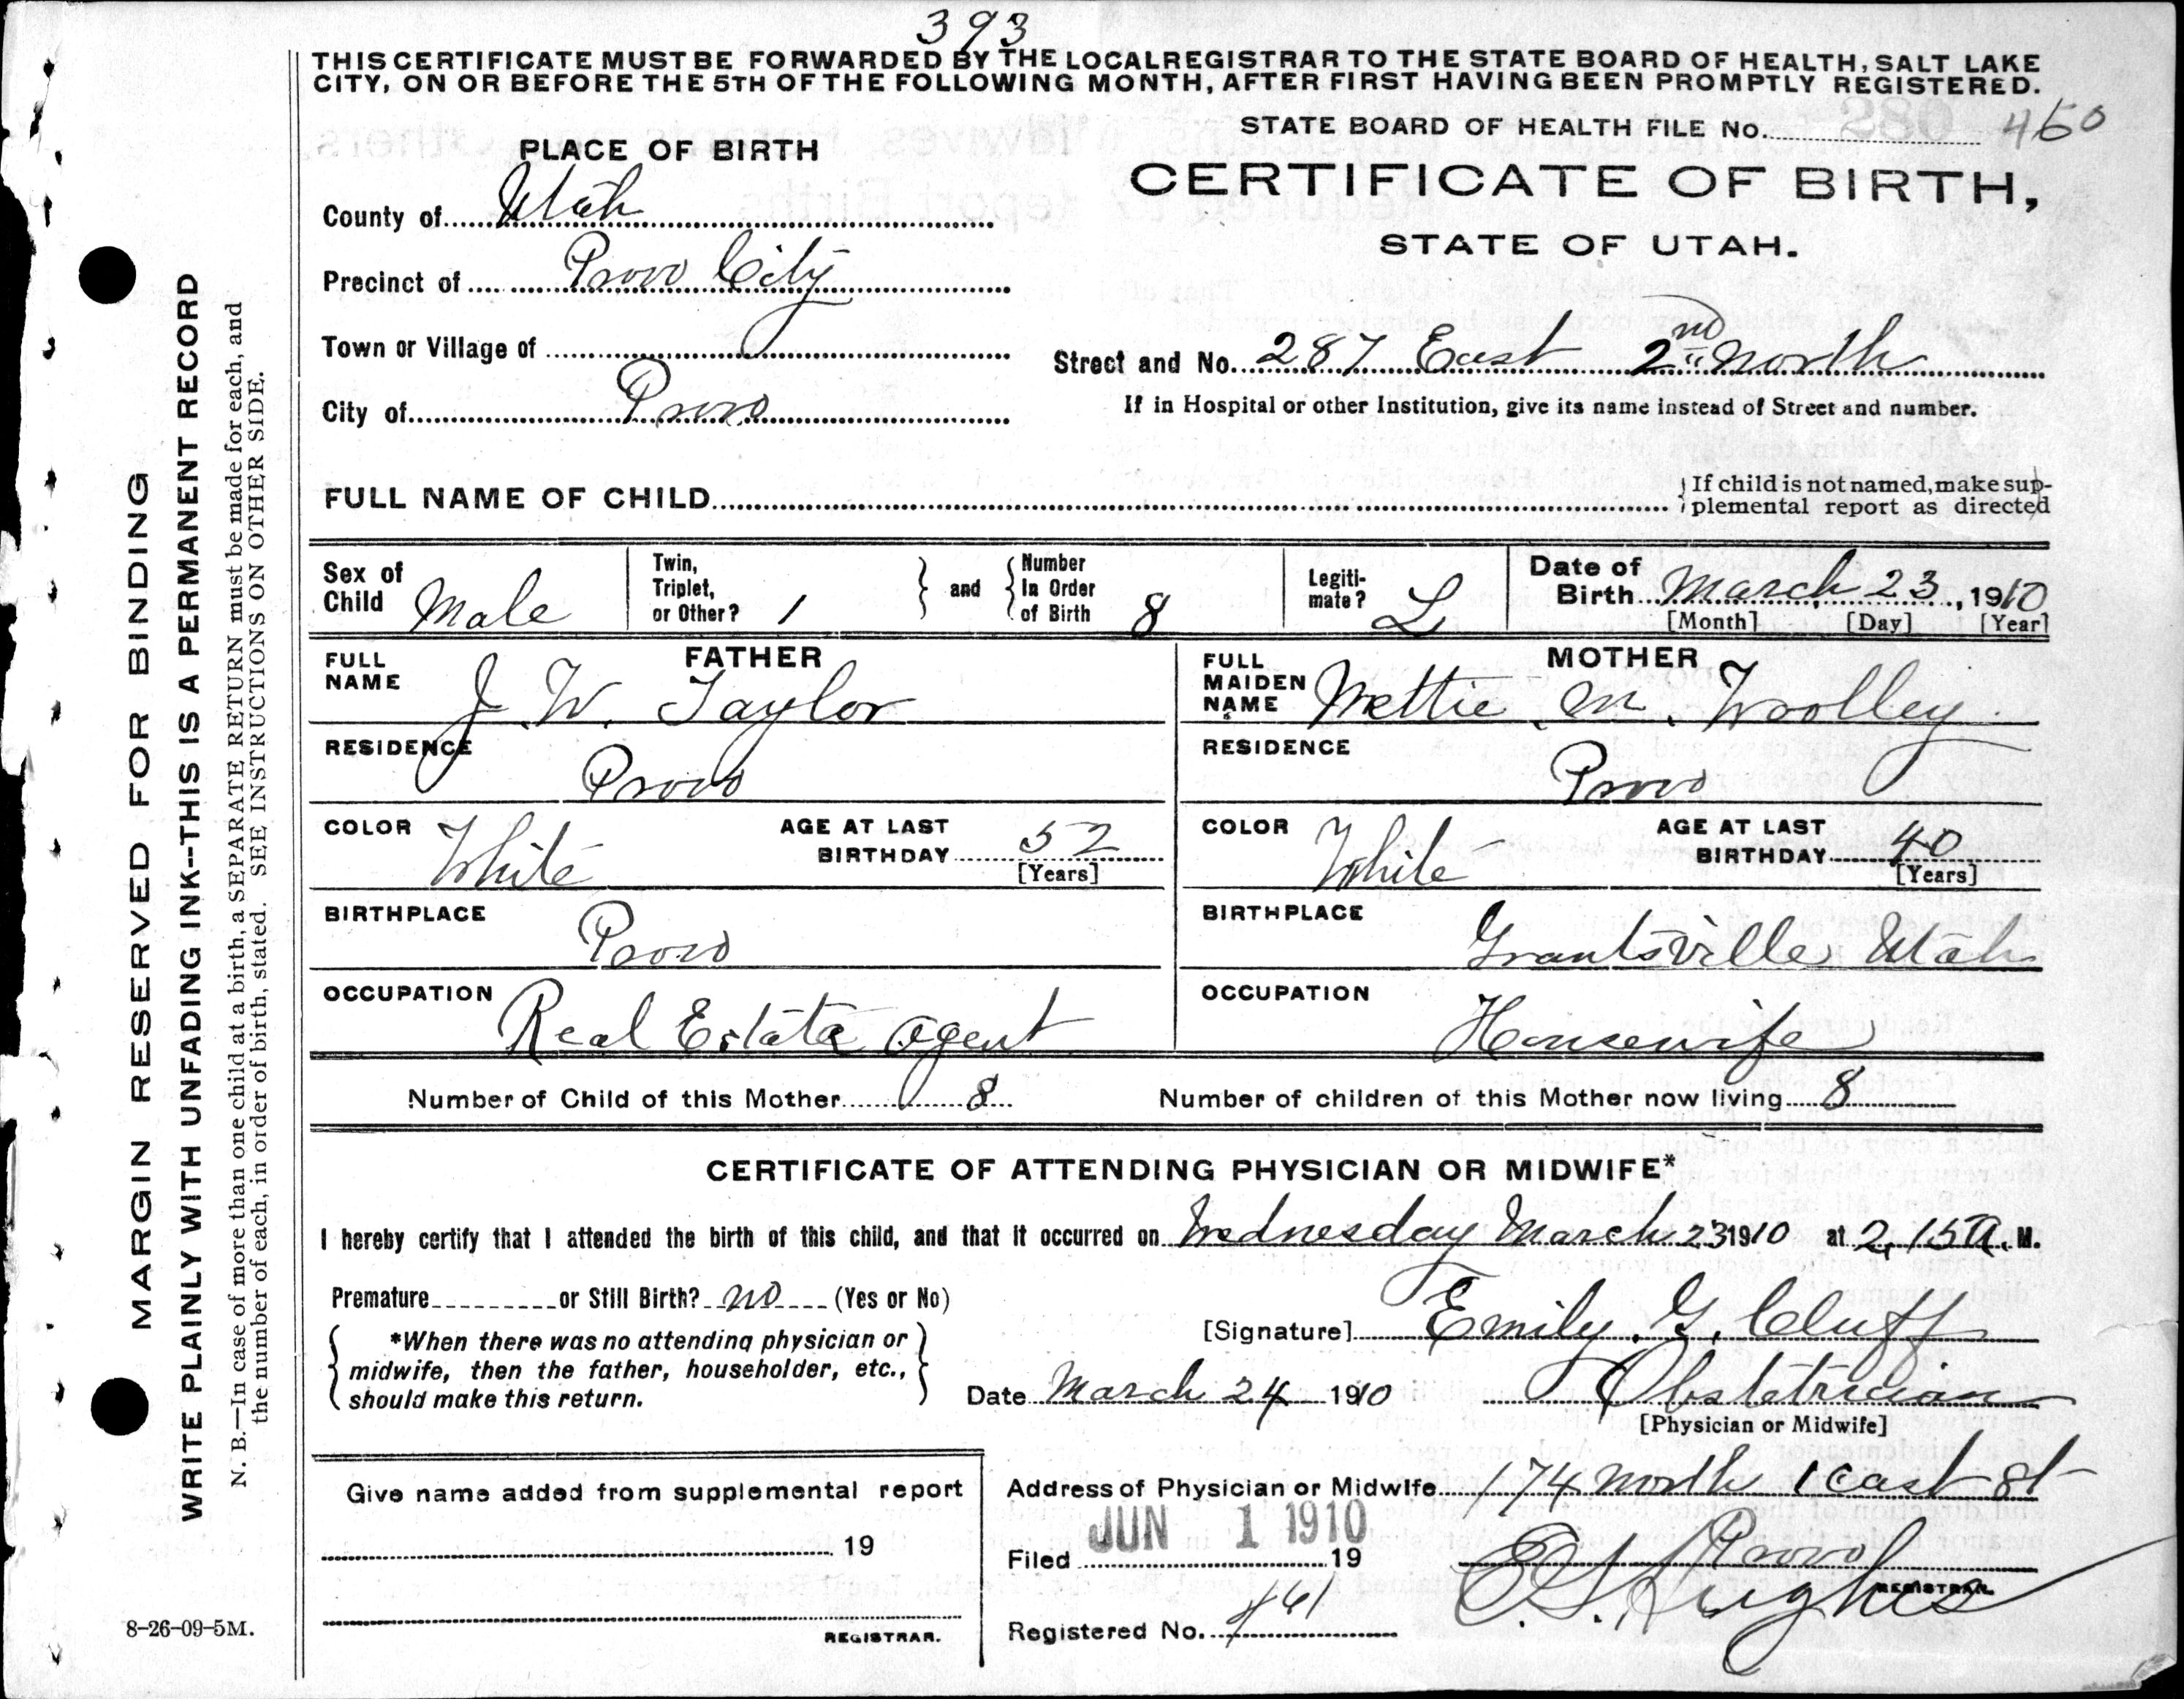 393
THIS CERTIFICATE MUST BE FORWARDED BY THE LOCAL REGISTRAR TO THE STATE BOARD OF HEALTH, SALT LAKE
CITY, ON OR BEFORE THE 5TH OF THE FOLLOWING MONTH, AFTER FIRST HAVING BEEN PROMPTLY REGISTERED.
STATE BOARD OF HEALTH FILE No. 460
PLACE OF BIRTH
CERTIFICATE OF BIRTH,
STATE OF UTAH.
County of Utah
Precinct of Provo City
Town or Village of
Street and No. 287 East 2nd North
City of Provo
If in Hospital or other Institution, give its name instead of Street and number.
FULL NAME OF CHILD
If child is not named, make sup-
plemental report as directed
Sex of Child Male
Twin, Triplet, or Other? 1
and Number In Order of Birth 8
Legiti-mate? L
Date of Birth March 23, 1910
[Month] [Day] [Year]
FATHER
FULL NAME J. W. Taylor
RESIDENCE Provo
COLOR White
AGE AT LAST BIRTHDAY 52
[Years]
BIRTHPLACE Provo
OCCUPATION Real Estate agent
MOTHER
FULL MAIDEN NAME Nettie M. Woolley
RESIDENCE Provo
COLOR White
AGE AT LAST BIRTHDAY 40
[Years]
BIRTHPLACE Grantsville Utah
OCCUPATION Housewife
Number of Child of this Mother 8
Number of children of this Mother now living 8
CERTIFICATE OF ATTENDING PHYSICIAN OR MIDWIFE*
I hereby certify that I attended the birth of this child, and that it occurred on Wednesday March 23 1910 at 2,15 A. M.
Premature or Still Birth? no (Yes or No)
*When there was no attending physician or
midwife, then the father, householder, etc.,
should make this return.
[Signature] Emily. G. Cluff
Date March 24 1910
Obstetrician
[Physician or Midwife]
Give name added from supplemental report
19
REGISTRAR.
Address of Physician or Midwife 174 North 1 East St
Provo
JUN 1 1910
Filed 19
REGISTRAR.
Registered No. 461
8-26-09-5M.
MARGIN RESERVED FOR BINDING
WRITE PLAINLY WITH UNFADING INK--THIS IS A PERMANENT RECORD
N. B.—In case of more than one child at a birth, a SEPARATE RETURN must be made for each, and
the number of each, in order of birth, stated. SEE INSTRUCTIONS ON OTHER SIDE.